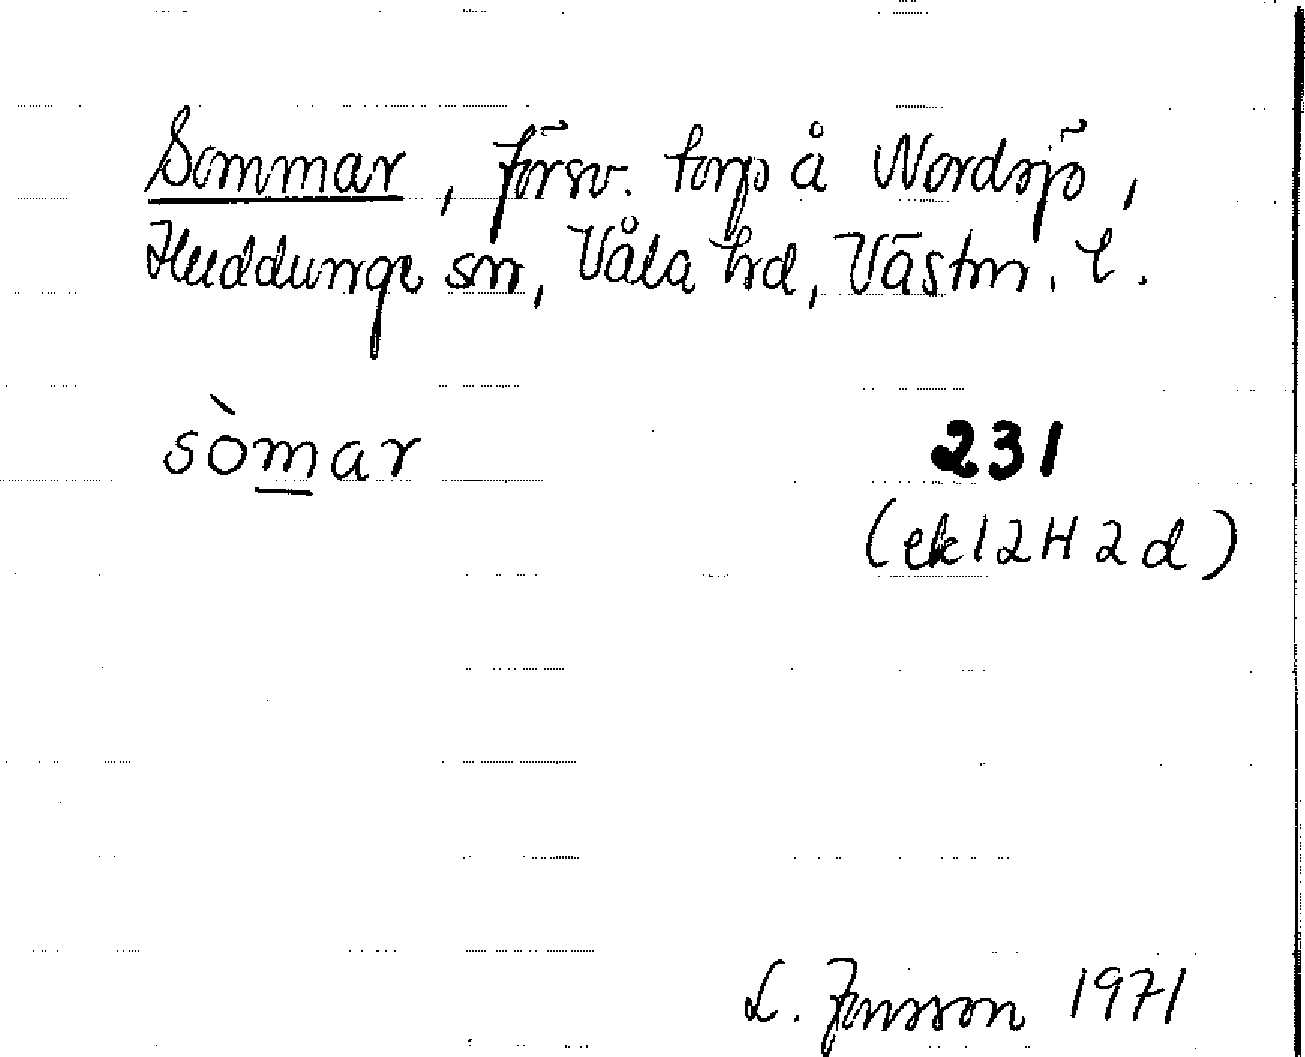 Sommar, försv. torp å Nordsjö,
Huddunge sn, Våla hd, Västm. l.
sòm̲ar
231
(ek 12H2d)
L. Jonsson 1971